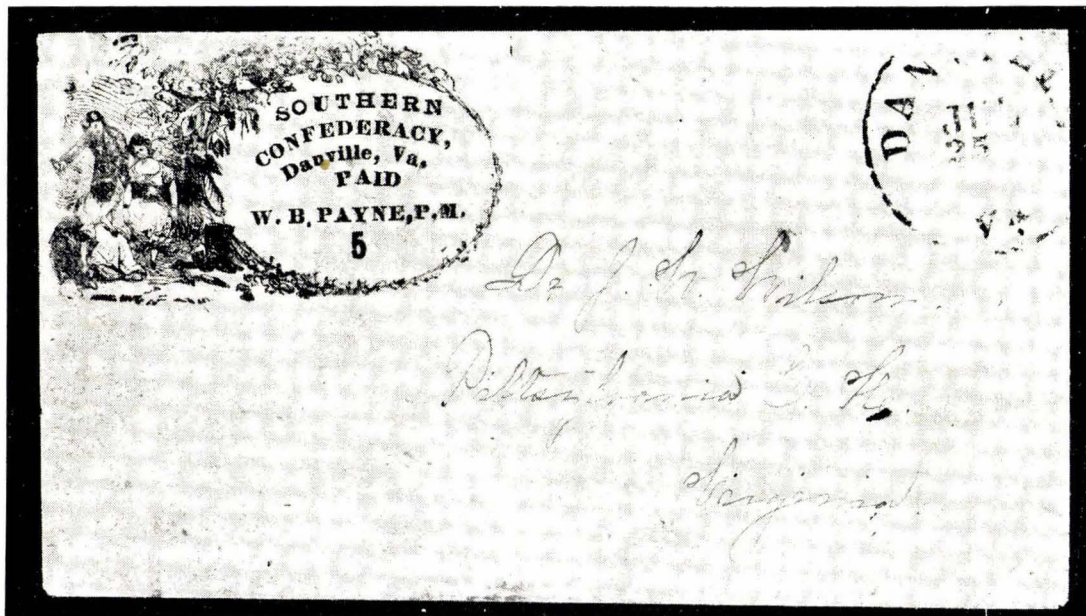 SOUTHERN
CONFEDERACY,
Danville, Va.
PAID
W. B. PAYNE, P.M.
5
DAN
Dr J. W. Wilson
Pittsylvania C. H.
Virginia